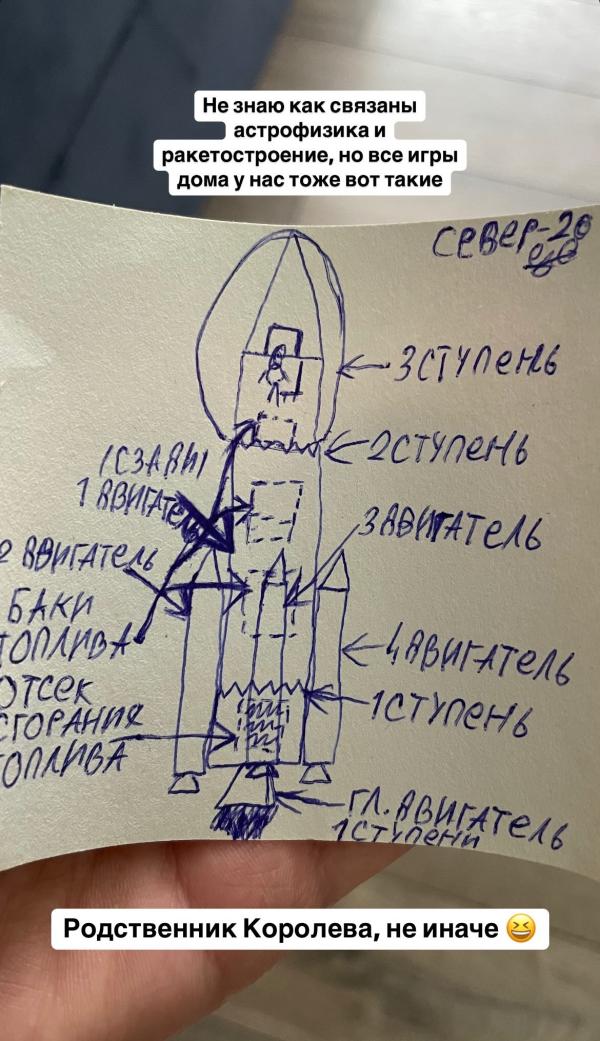 Не знаю как связаны
астрофизика и
ракетостроение, но все игры
дома у нас тоже вот такие
СЕВЕР-20
3 СТУПЕНЬ
2 СТУПЕНЬ
(СЗАДИ)
1 ДВИГАТЕЛЬ
3 ДВИГАТЕЛЬ
2 ДВИГАТЕЛЬ
БАКИ
ТОПЛИВА
4 ДВИГАТЕЛЬ
ОТСЕК
СГОРАНИЯ
ТОПЛИВА
1 СТУПЕНЬ
ГЛ. ДВИГАТЕЛЬ
1 СТУПЕНИ
Родственник Королева, не иначе 😆